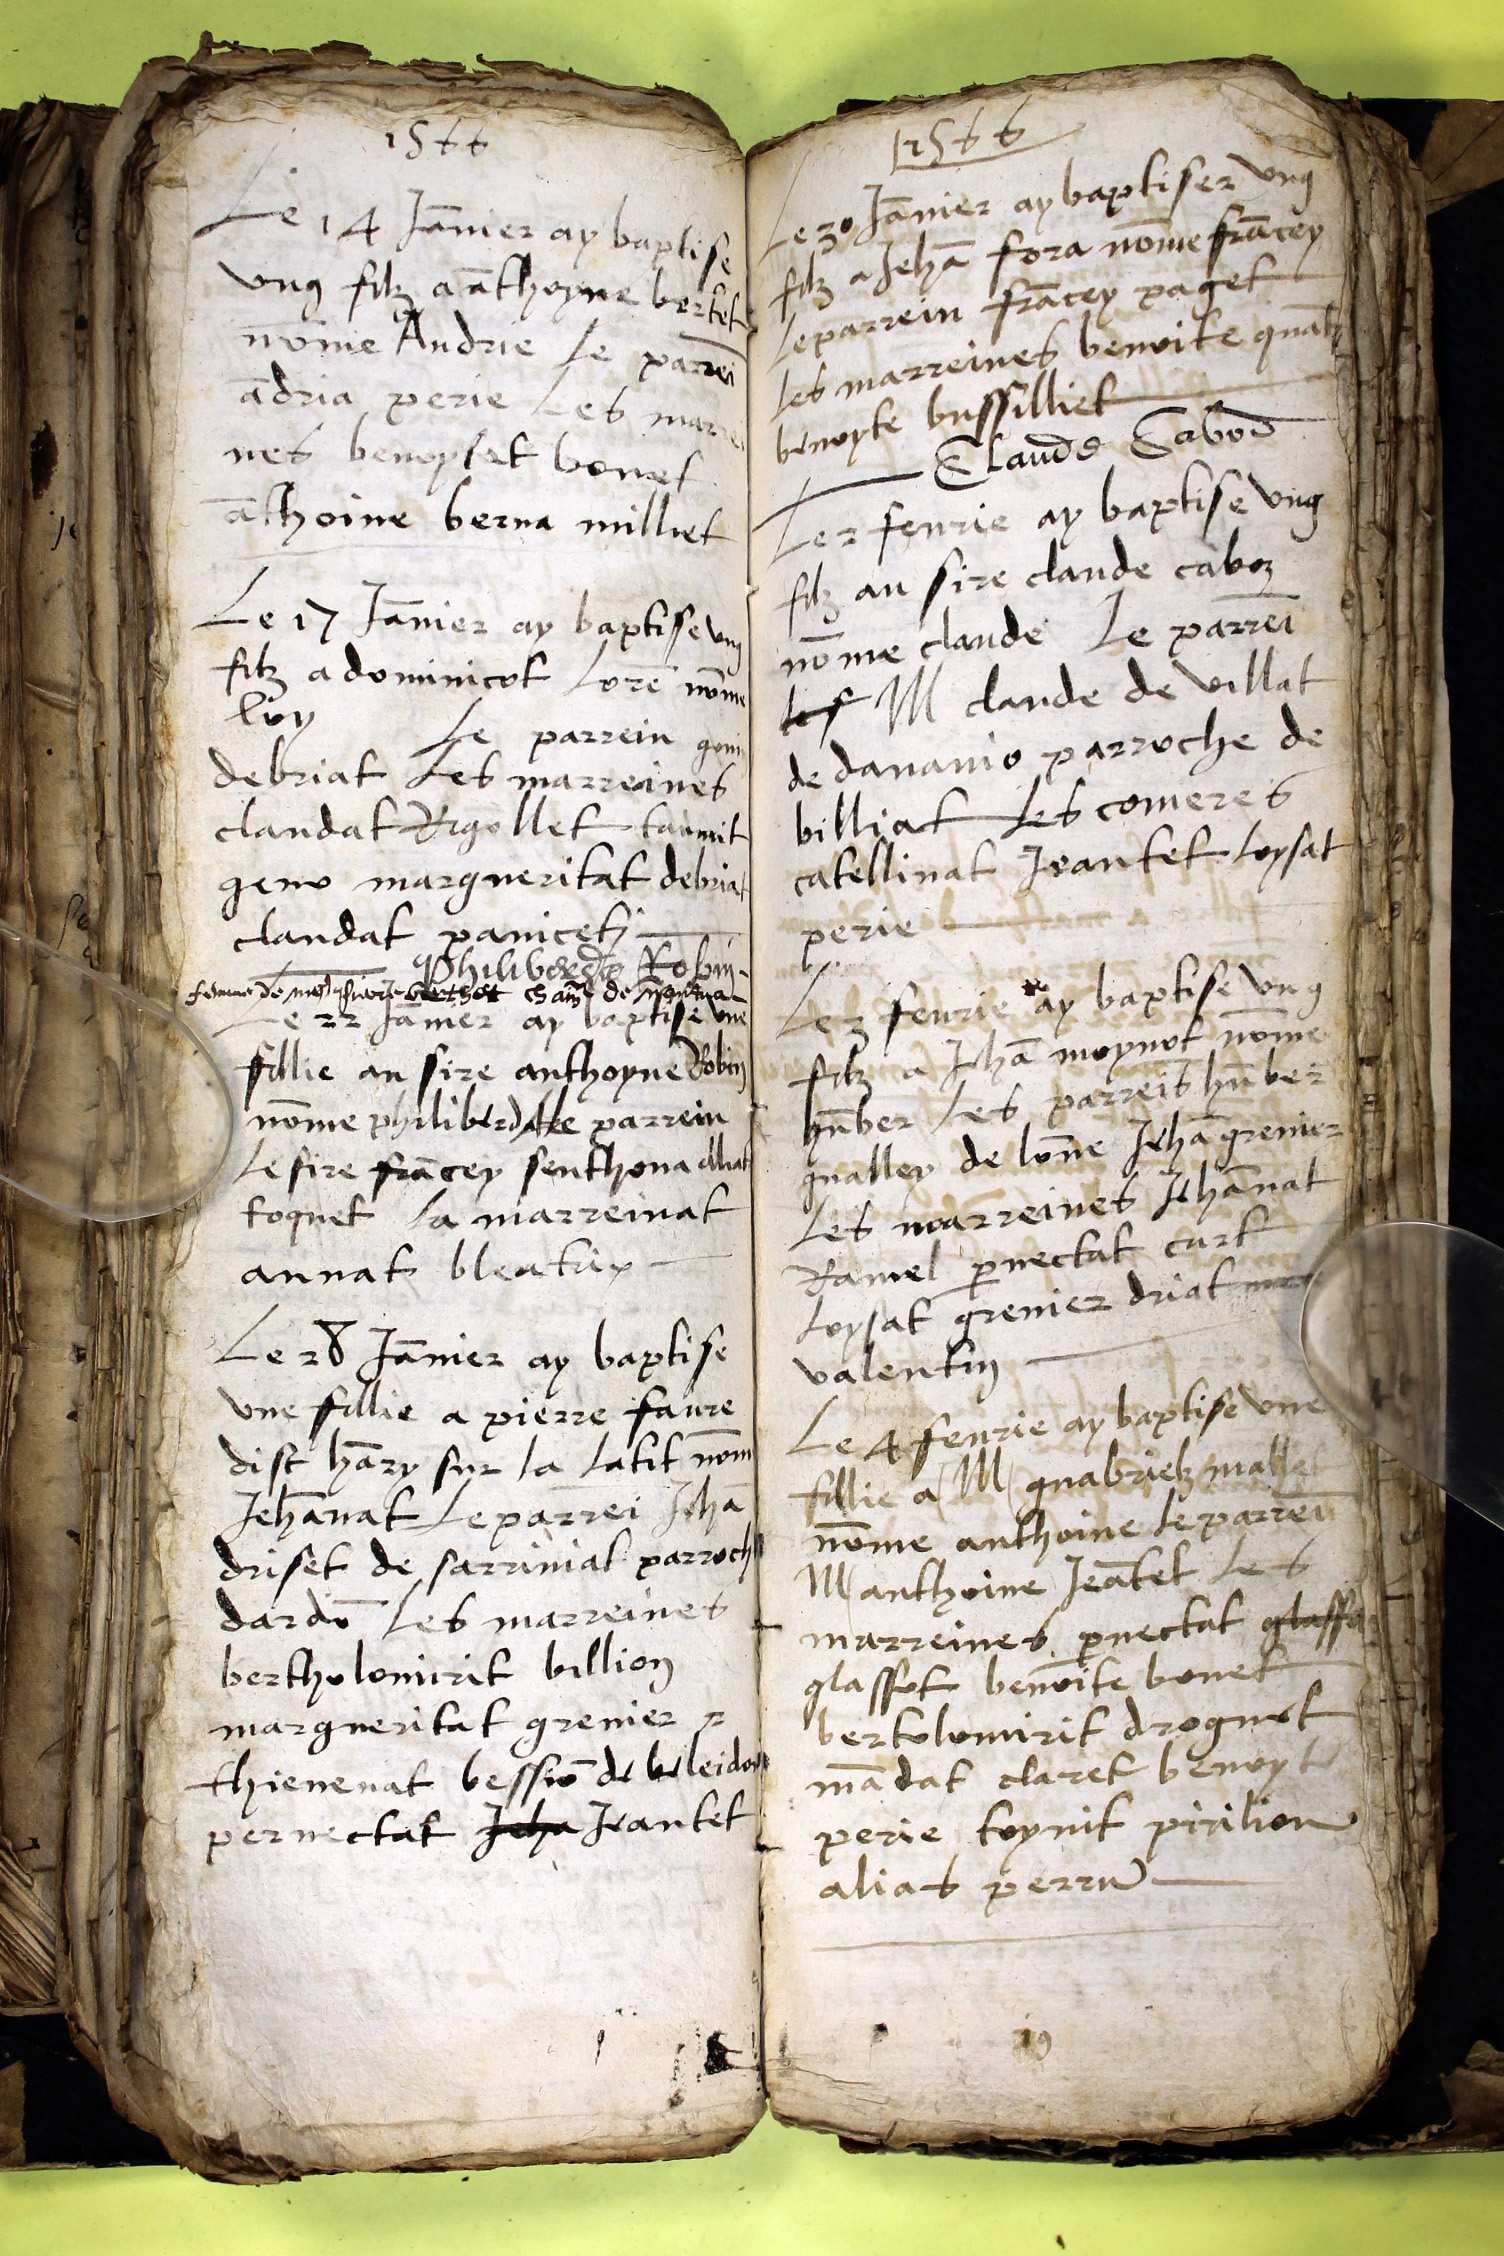 1566
Le 14 Jāvier ay baptise
ung filz a āthoyne bertet
nōme Andrie Le parrei
ādria perie Les marrei
nes benoyset bonet
āthoine berna milliet
Le 17 Jāvier ay baptisse ung
filz a dominicot Lorē nōme
loy Le parrein
debriat Les marreines
claudat Rigollet
geno margueritat debriat
claudat panicetz
Philiberde Robin
femme de pierre berthet de nantua
Le 22 Jāvier ay baptise une
fillie au sire anthoyne Robin
nōme philiberda Le parrein
Le sire frācey senthona
toquet La marreinat
annat
Le 28 Jāvier ay baptise
une fillie a pierre faure
dist hāry sur la Latit nom
Jehānat Le parrei Jehā
driset de sarriniat parroch
dardō Les marreines
bertholomirit billion
margueritat grenier
thievenat bessiō de beleidou
pernectat Jeha Jeantet
1566
Le 30 Jāvier ay baptiser ung
filz a Jehā fora nōme frācey
Le parrein frācey paget
Les marreines benoite
benoyte bussilliet
Claude Cabod
Le 2 feurie ay baptise ung
filz au sire claude caboz
nōme claude Le parrei
les M claude de villat
de dananio parroche de
billiat Les comeres
catellinat Jeantet Loysat
perie
Le 3 feurie ay baptise ung
filz a Jehā moynot nōme
hūber Les parreis hūber
gualley de lone Jehā grenier
Les marreines Jehānat
Ramel pnectat curt
Loysat grenier driat
valentin
Le 4 feurie ay baptise une
fillie a M guabrielz malle
nōme anthoine Le parrein
M anthoine Jeātet Les
marreines pnectat glassot
glassot benoite bonet
bertolomirit droguet
mādat claret benoyte
perie toynit pirilion
alias perru
19